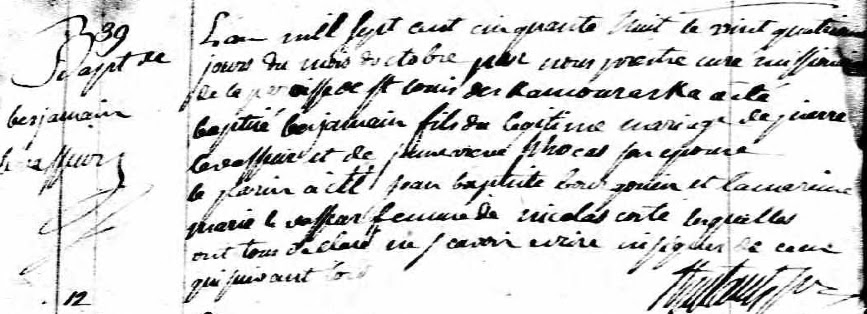 B 39
Bapt de
benjamain
levasseur
L'an mill sept cent cinquante huit le vint quatrieme
jours du mois doctobre par nous prestre curé missionn
de la paroisse de st Louis des Kamouraska a eté
baptisé benjamain fils du legitime mariage de pierre
levasseur et de jeneviève son epouse
le parin a eté jean baptiste et la mareine
marie levasseur femme de nicolas coté lesquelles
ont tous declaré ne scavoir ecrire ni signer de ceux
qui suivant
12